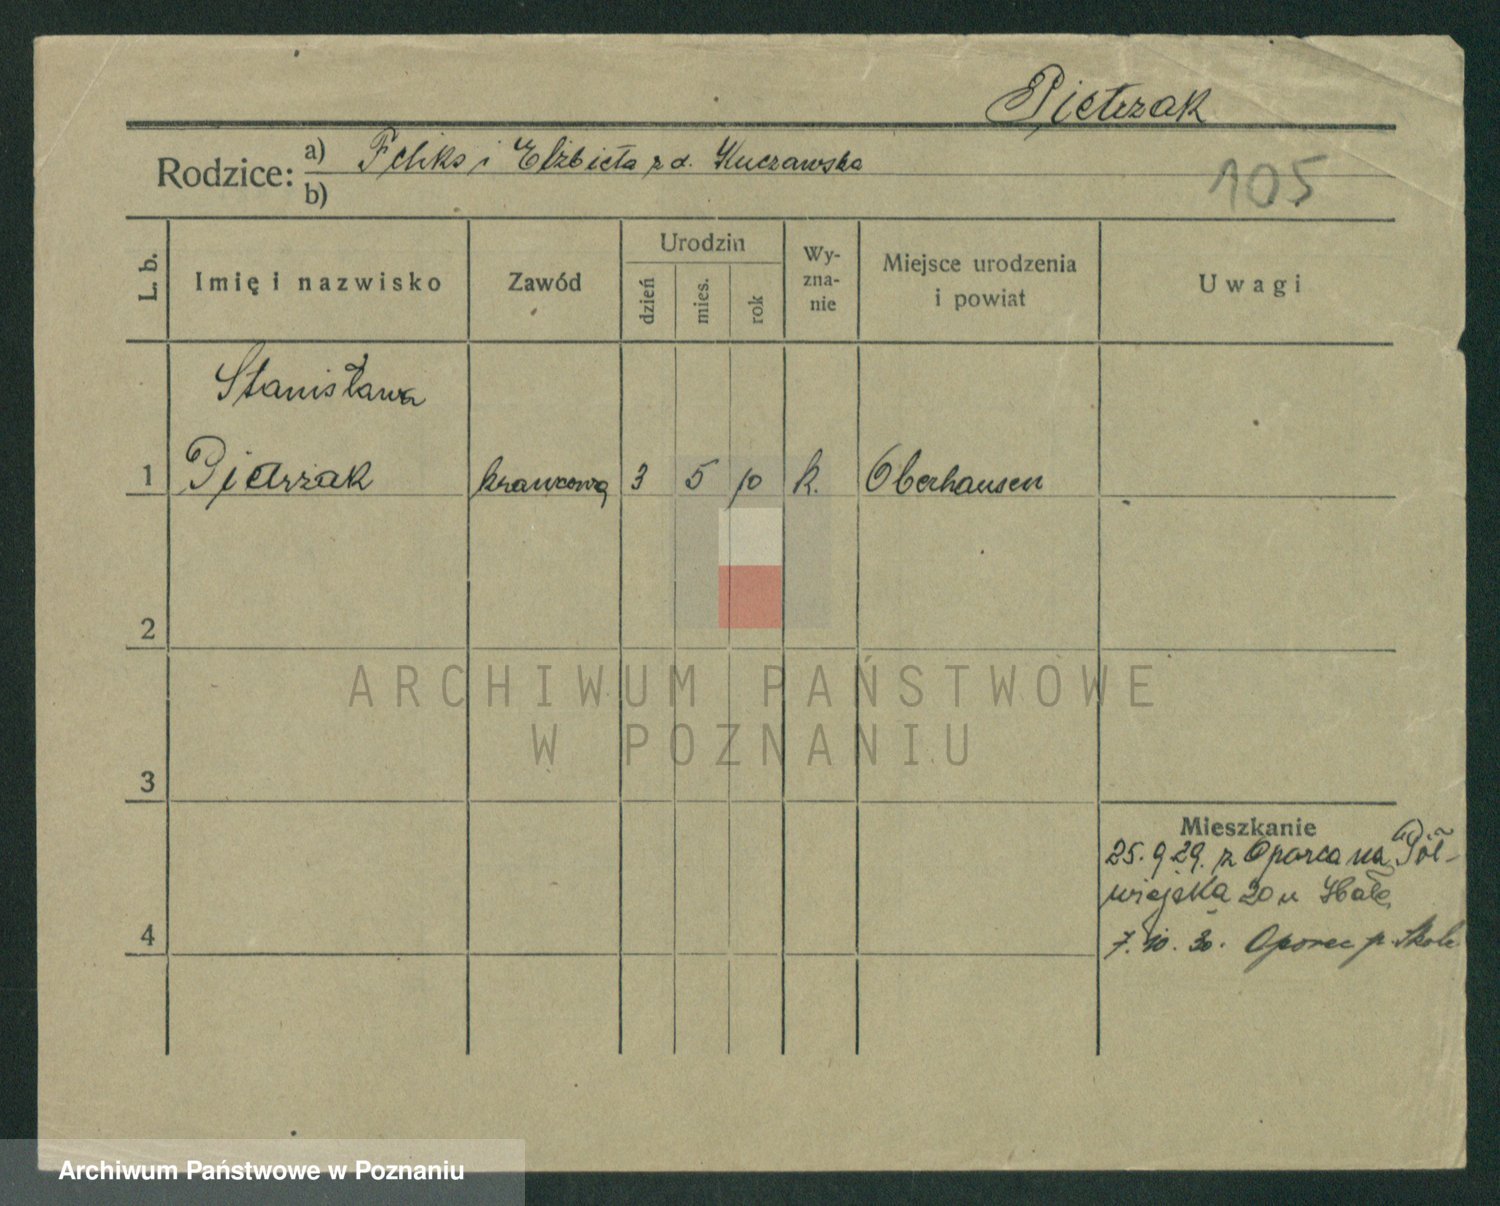 Pietrzak
Rodzice: a) Feliks i Elżbieta z d. Kuczawska
b)
105
L. b.
Imię i nazwisko
Zawód
Urodzin
dzień
mies.
rok
Wy-
zna-
nie
Miejsce urodzenia
i powiat
Uwagi
Stanisława
1 Pietrzak krawcowa 3 5 10 k. Oberhausen
2
ARCHIWUM PAŃSTWOWE
W POZNANIU
3
Mieszkanie
25. 9 29. z Oporca na Pół-
wiejska 20 u
4
7. 10. 30. Oporzec p.
Archiwum Państwowe w Poznaniu